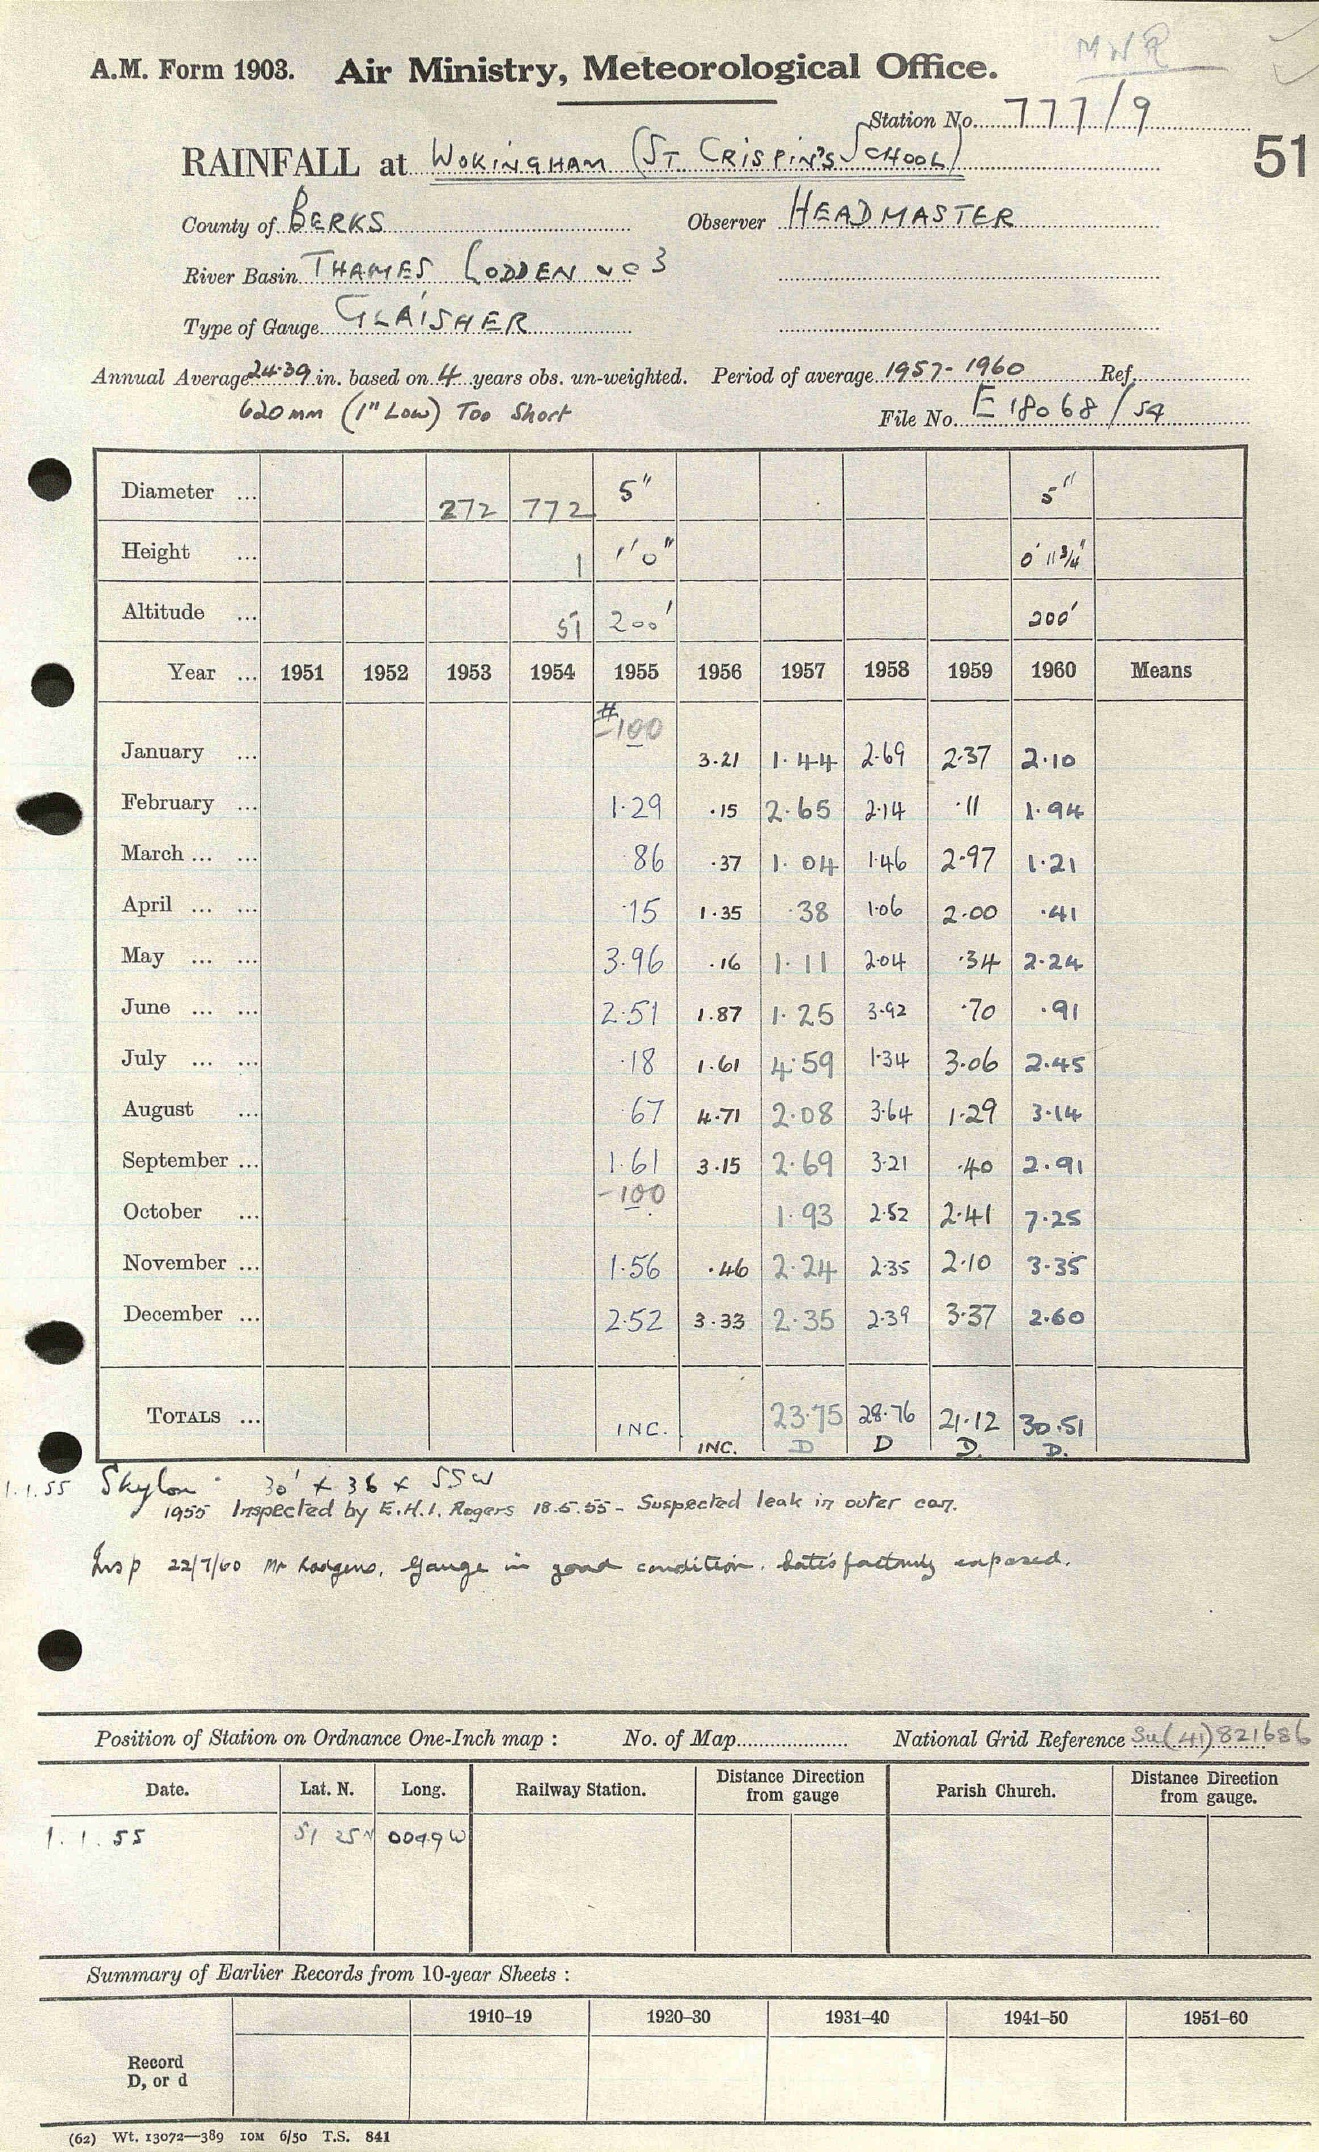 MNR
A.M. Form 1903. Air Ministry, Meteorological Office.
Station No. 777/9
51
RAINFALL at WOKINGHAM (ST CRISPIN'S SCHOOL)
County of BERKS Observer HEADMASTER
River Basin THAMES LODDEN 3
Type of Gauge GLAISHER
Annual Average 24.39 in. based on 4 years obs. un-weighted. Period of average 1957-1960 Ref.
620mm (1" Low) Too Short File No. E 18068/54
Diameter ... 272 772 5" 5"
Height ... 1 1'0" 0' 11 3/4"
Altitude ... 51 200' 200'
Year ... 1951 1952 1953 1954 1955 1956 1957 1958 1959 1960 Means
# -100
January ... 3.21 1.44 2.69 2.37 2.10
February ... 1.29 .15 2.65 2.14 .11 1.94
March ... ... .86 .37 1.04 1.46 2.97 1.21
April ... ... .15 1.35 .38 1.06 2.00 .41
May ... ... 3.96 .16 1.11 2.04 .34 2.24
June ... ... 2.51 1.87 1.25 3.92 .70 .91
July ... ... .18 1.61 4.59 1.34 3.06 2.45
August ... .67 4.71 2.08 3.64 1.29 3.14
September ... 1.61 3.15 2.69 3.21 .40 2.91
-100
October ... 1.93 2.52 2.41 7.25
November ... 1.56 .46 2.24 2.35 2.10 3.35
December ... 2.52 3.33 2.35 2.39 3.37 2.60
TOTALS ... INC. INC. 23.75 28.76 21.12 30.51
D D D. D.
1.1.55 Skylon 30' x 36 x SSW
1955 Inspected by E.H.I. Rogers 18.5.55 - Suspected leak in outer can.
Insp 22/7/60 Mr Rodgers. Gauge in good condition. Satisfactorily exposed.
Position of Station on Ordnance One-Inch map : No. of Map National Grid Reference SU(41)821686
Date. Lat. N. Long. Railway Station. Distance from gauge Direction Parish Church. Distance from gauge. Direction
1.1.55 51 25N 0049W
Summary of Earlier Records from 10-year Sheets :
1910–19 1920–30 1931–40 1941–50 1951–60
Record
D, or d
(62) Wt. 13072—389 10M 6/50 T.S. 841